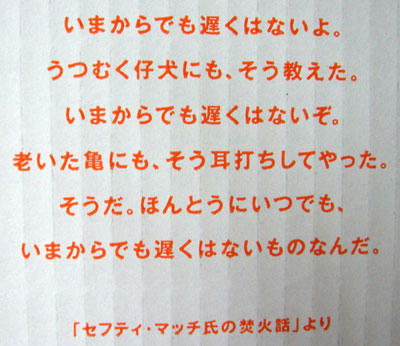 いまからでも遅くはないよ。
うつむく仔犬にも、そう教えた。
いまからでも遅くはないぞ。
老いた亀にも、そう耳打ちしてやった。
そうだ。ほんとうにいつでも、
いまからでも遅くはないものなんだ。
「セフティ・マッチ氏の焚火話」より